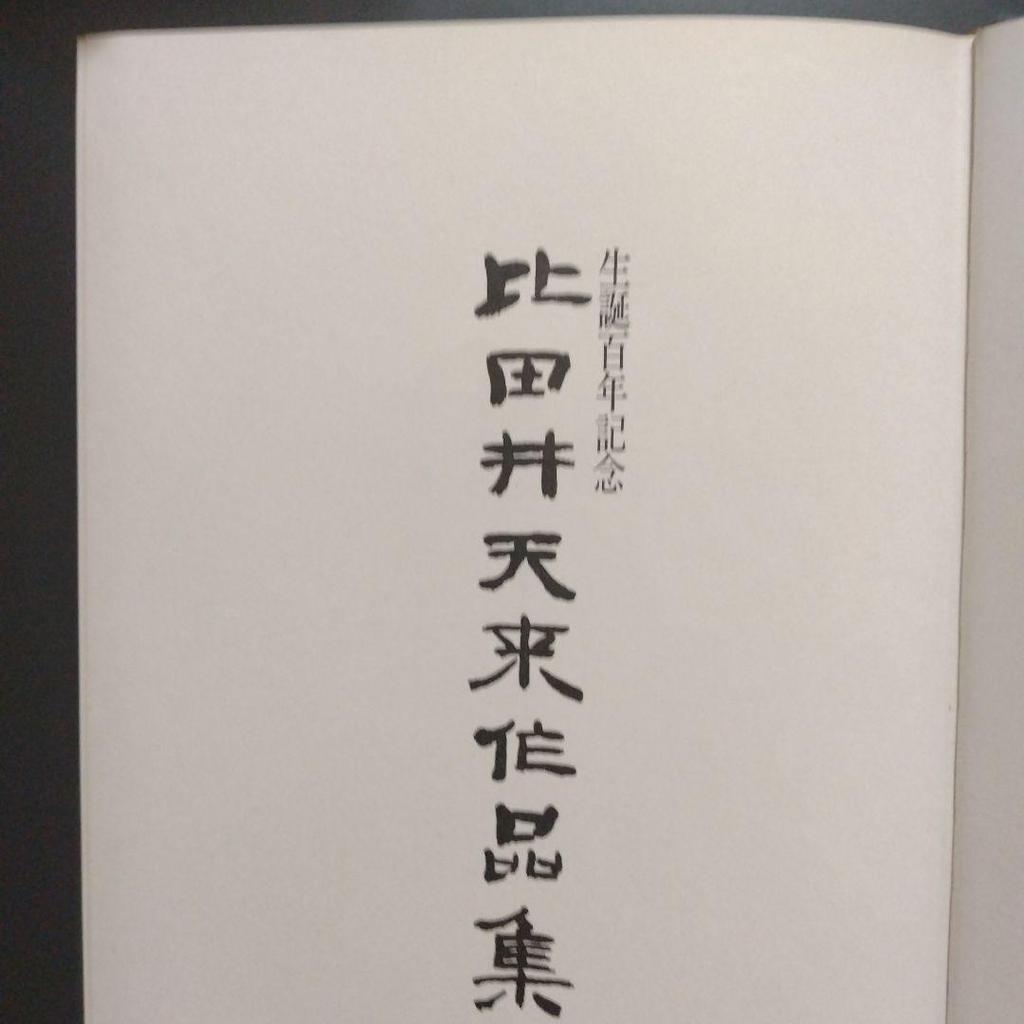 生誕百年記念
比田井天来作品集